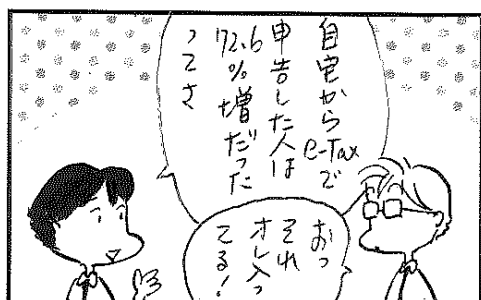 自宅から
e-Taxで
申告した人は
72.6
%増だった
ってさ
おっ
それ
オレ入っ
てる!